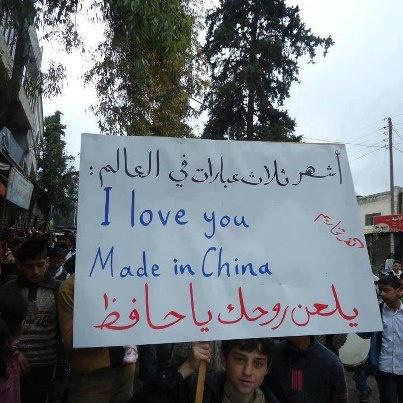 أشهر ثلاث عبارات في العالم :
I love you
Made in China
يلعن روحك يا حافظ